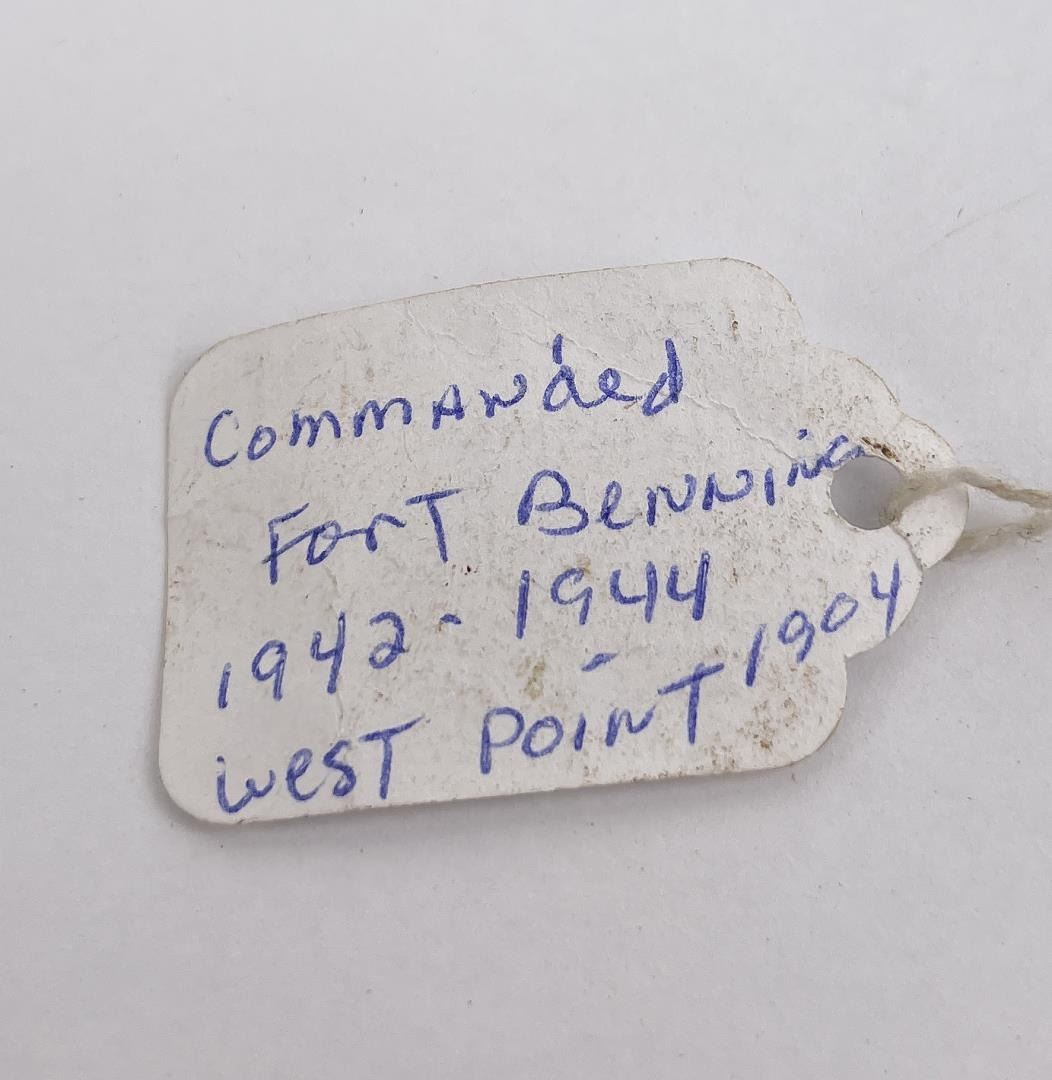 Commanded
Fort Benning
1942-1944
West Point 1904